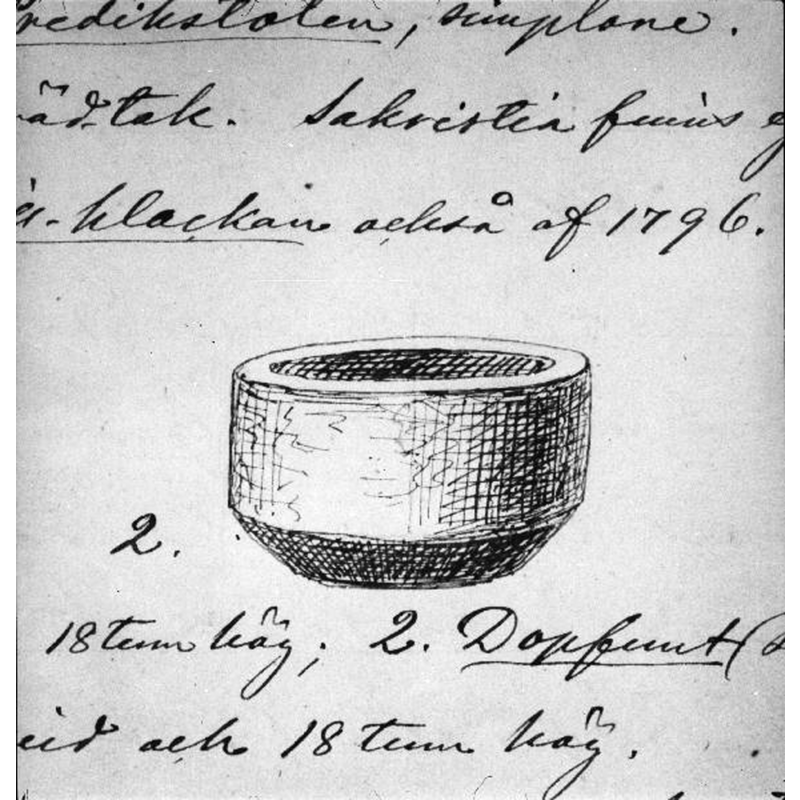 redikstolen, simplare.
ädtak. Sakristia finns
klockan också af 1796.
2.
18 tum hög; 2. Dopfunt (
och 18 tum hög.